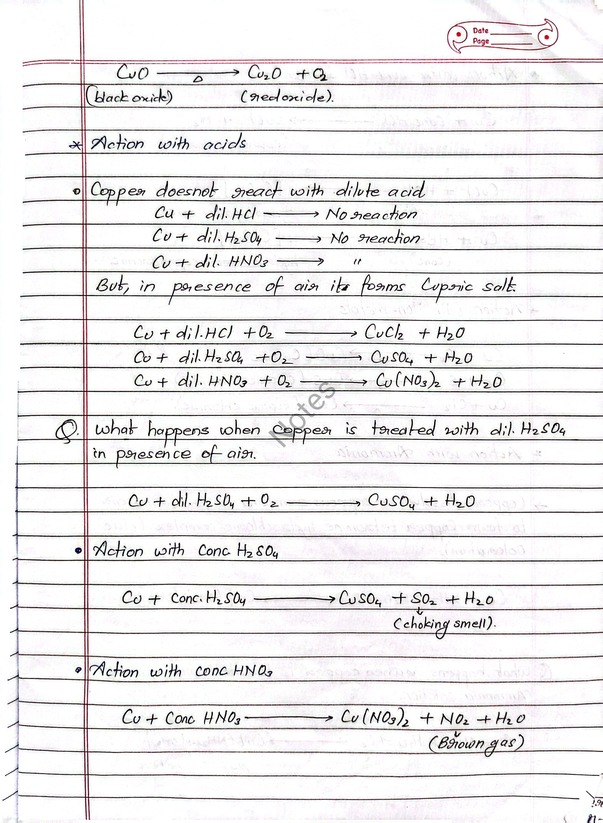 Date
Page
CuO —Δ→ Cu₂O + O₂
(black oxide) (red oxide).
* Action with acids
• Copper doesnot react with dilute acid
Cu + dil. HCl → No reaction
Cu + dil. H₂SO₄ → No reaction
Cu + dil. HNO₃ → "
But, in presence of air it forms Cupric salt.
Cu + dil. HCl + O₂ → CuCl₂ + H₂O
Cu + dil. H₂SO₄ + O₂ → CuSO₄ + H₂O
Cu + dil. HNO₃ + O₂ → Cu(NO₃)₂ + H₂O
Notes
Q. What happens when copper is treated with dil. H₂SO₄
in presence of air.
Cu + dil. H₂SO₄ + O₂ → CuSO₄ + H₂O
• Action with Conc H₂SO₄
Cu + Conc. H₂SO₄ → CuSO₄ + SO₂ + H₂O
(choking smell).
• Action with conc HNO₃
Cu + Conc HNO₃ → Cu(NO₃)₂ + NO₂ + H₂O
(Brown gas)